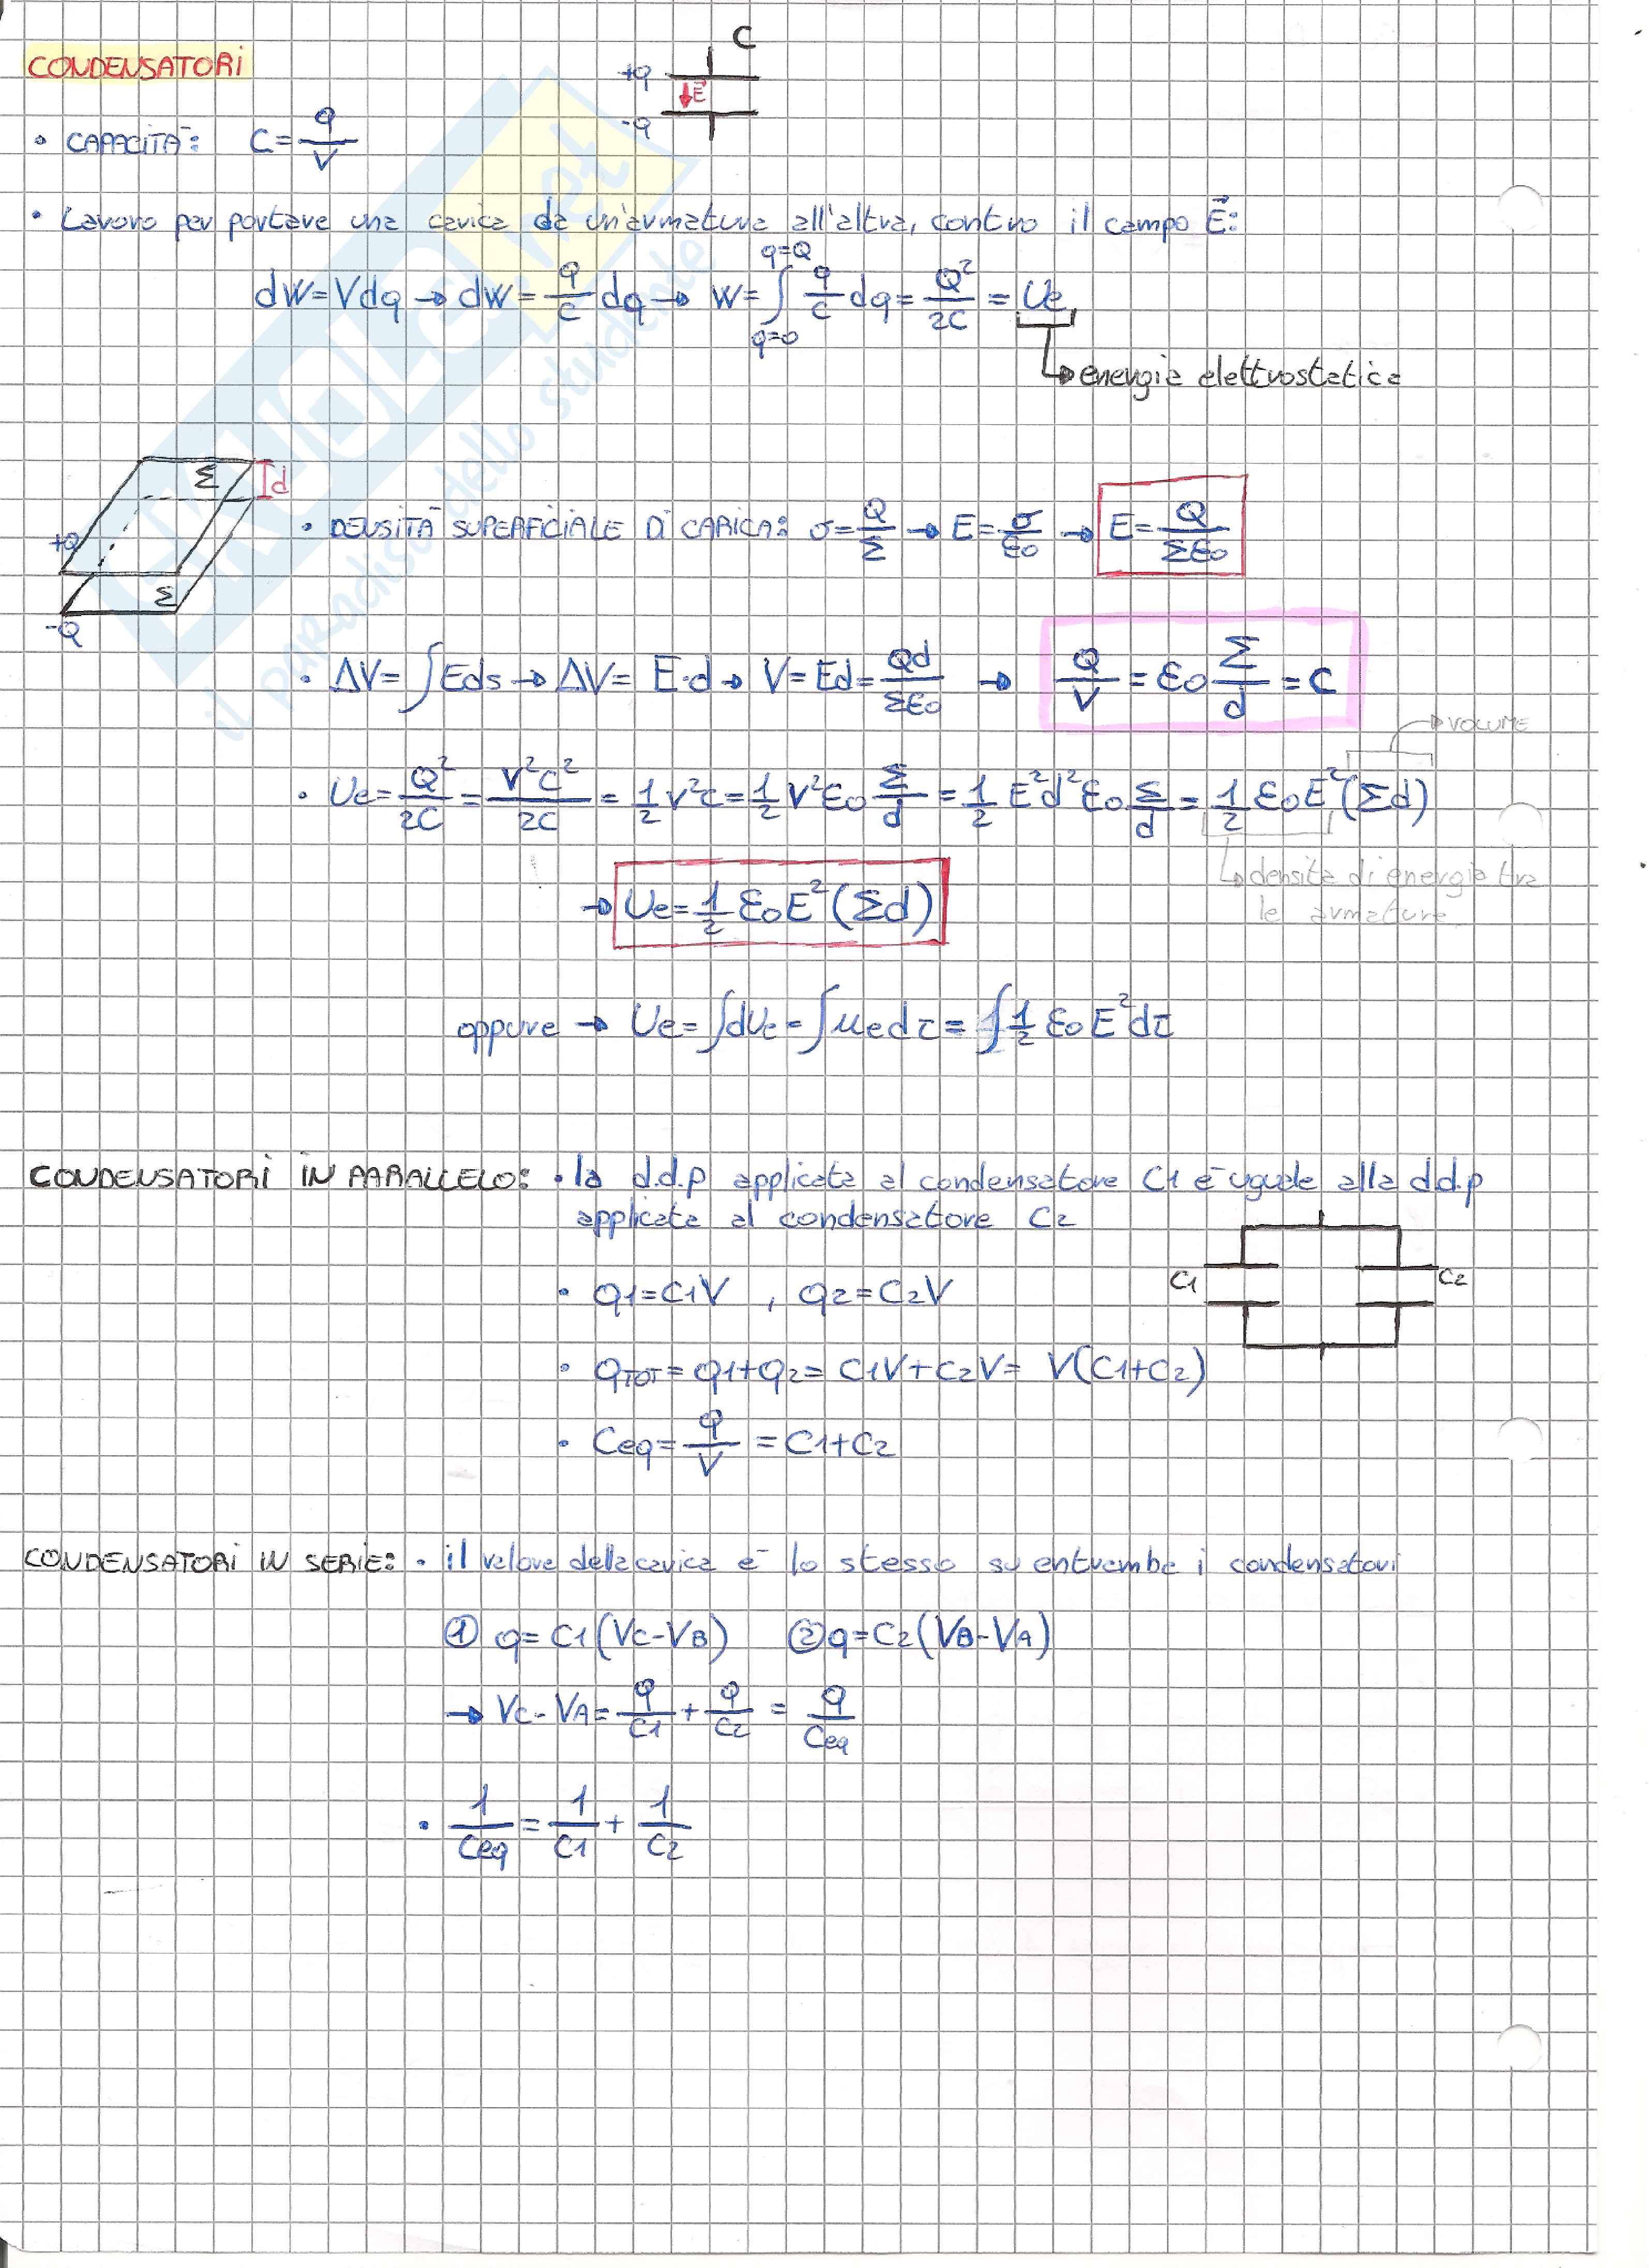 C
CONDENSATORI
+q
E
-q
• CAPACITÀ: C = q/V
• Lavoro per portare una carica da un'armatura all'altra, contro il campo E⃗:
dW = Vdq → dW = q/C dq → W = ∫ q=0 q=Q q/C dq = Q²/2C = Ue
↳ energia elettrostatica
Σ d
+Q
Σ
-Q
• DENSITÀ SUPERFICIALE DI CARICA: σ = Q/Σ → E = σ/ε0 → E = Q/Σε0
• ΔV = ∫Eds → ΔV = E·d → V = Ed = Qd/Σε0 → Q/V = ε0 Σ/d = C
→ VOLUME
• Ue = Q²/2C = V²C²/2C = 1/2 V²C = 1/2 V²ε0 Σ/d = 1/2 E²d²ε0 Σ/d = 1/2 ε0E²(Σd)
↳ densità di energia tra
le armature
→ Ue = 1/2 ε0E²(Σd)
oppure → Ue = ∫dUe = ∫μedτ = ∫1/2 ε0E²dτ
CONDENSATORI IN PARALLELO: • la d.d.p applicata al condensatore C1 è uguale alla d.d.p
applicata al condensatore C2
C1 C2
• q1=C1V , q2=C2V
• qTOT = q1+q2 = C1V+C2V = V(C1+C2)
• Ceq = q/V = C1+C2
CONDENSATORI IN SERIE: • il valore della carica è lo stesso su entrambe i condensatori
① q = C1(VC-VB) ② q = C2(VB-VA)
→ VC-VA = q/C1 + q/C2 = q/Ceq
• 1/Ceq = 1/C1 + 1/C2
il paradiso dello studente